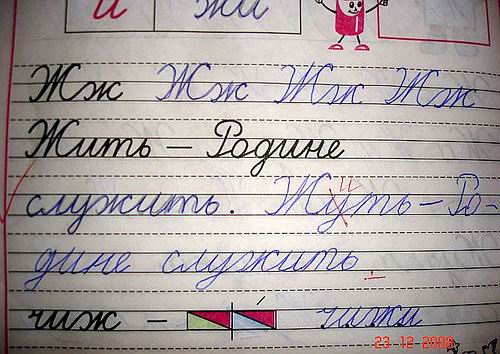 и жи
Жж Жж Жж Жж
Жить – Родине
служить. Жуть – Ро-
и
дине служить.
чиж – чижи
23 12 2008